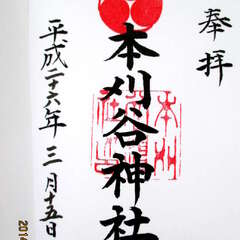 奉拝
本刈谷神社
平成二十六年三月十五日
201